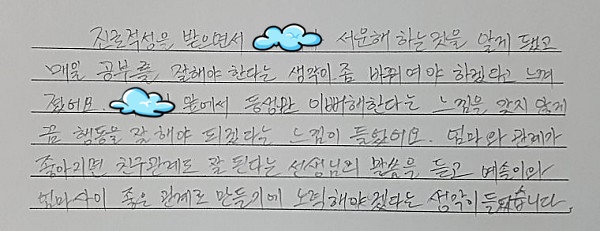 진로적성을 받으면서 서운해 하는 것을 알게 됐고
매일 공부를 잘해야 한다는 생각이 좀 바뀌여야 하겠다고 느껴
졌어요. 앞에서 동생만 이뻐해한다는 느낌을 갖지 않게
끔 행동을 잘 해야 되겠다는 느낌이 들었어요. 엄마와 관계가
좋아지면 친구관계도 잘 된다는 선생님의 말씀을 듣고 예슬이와
엄마사이 좋은 관계로 만들기에 노력해야겠다는 생각이 들었습니다.